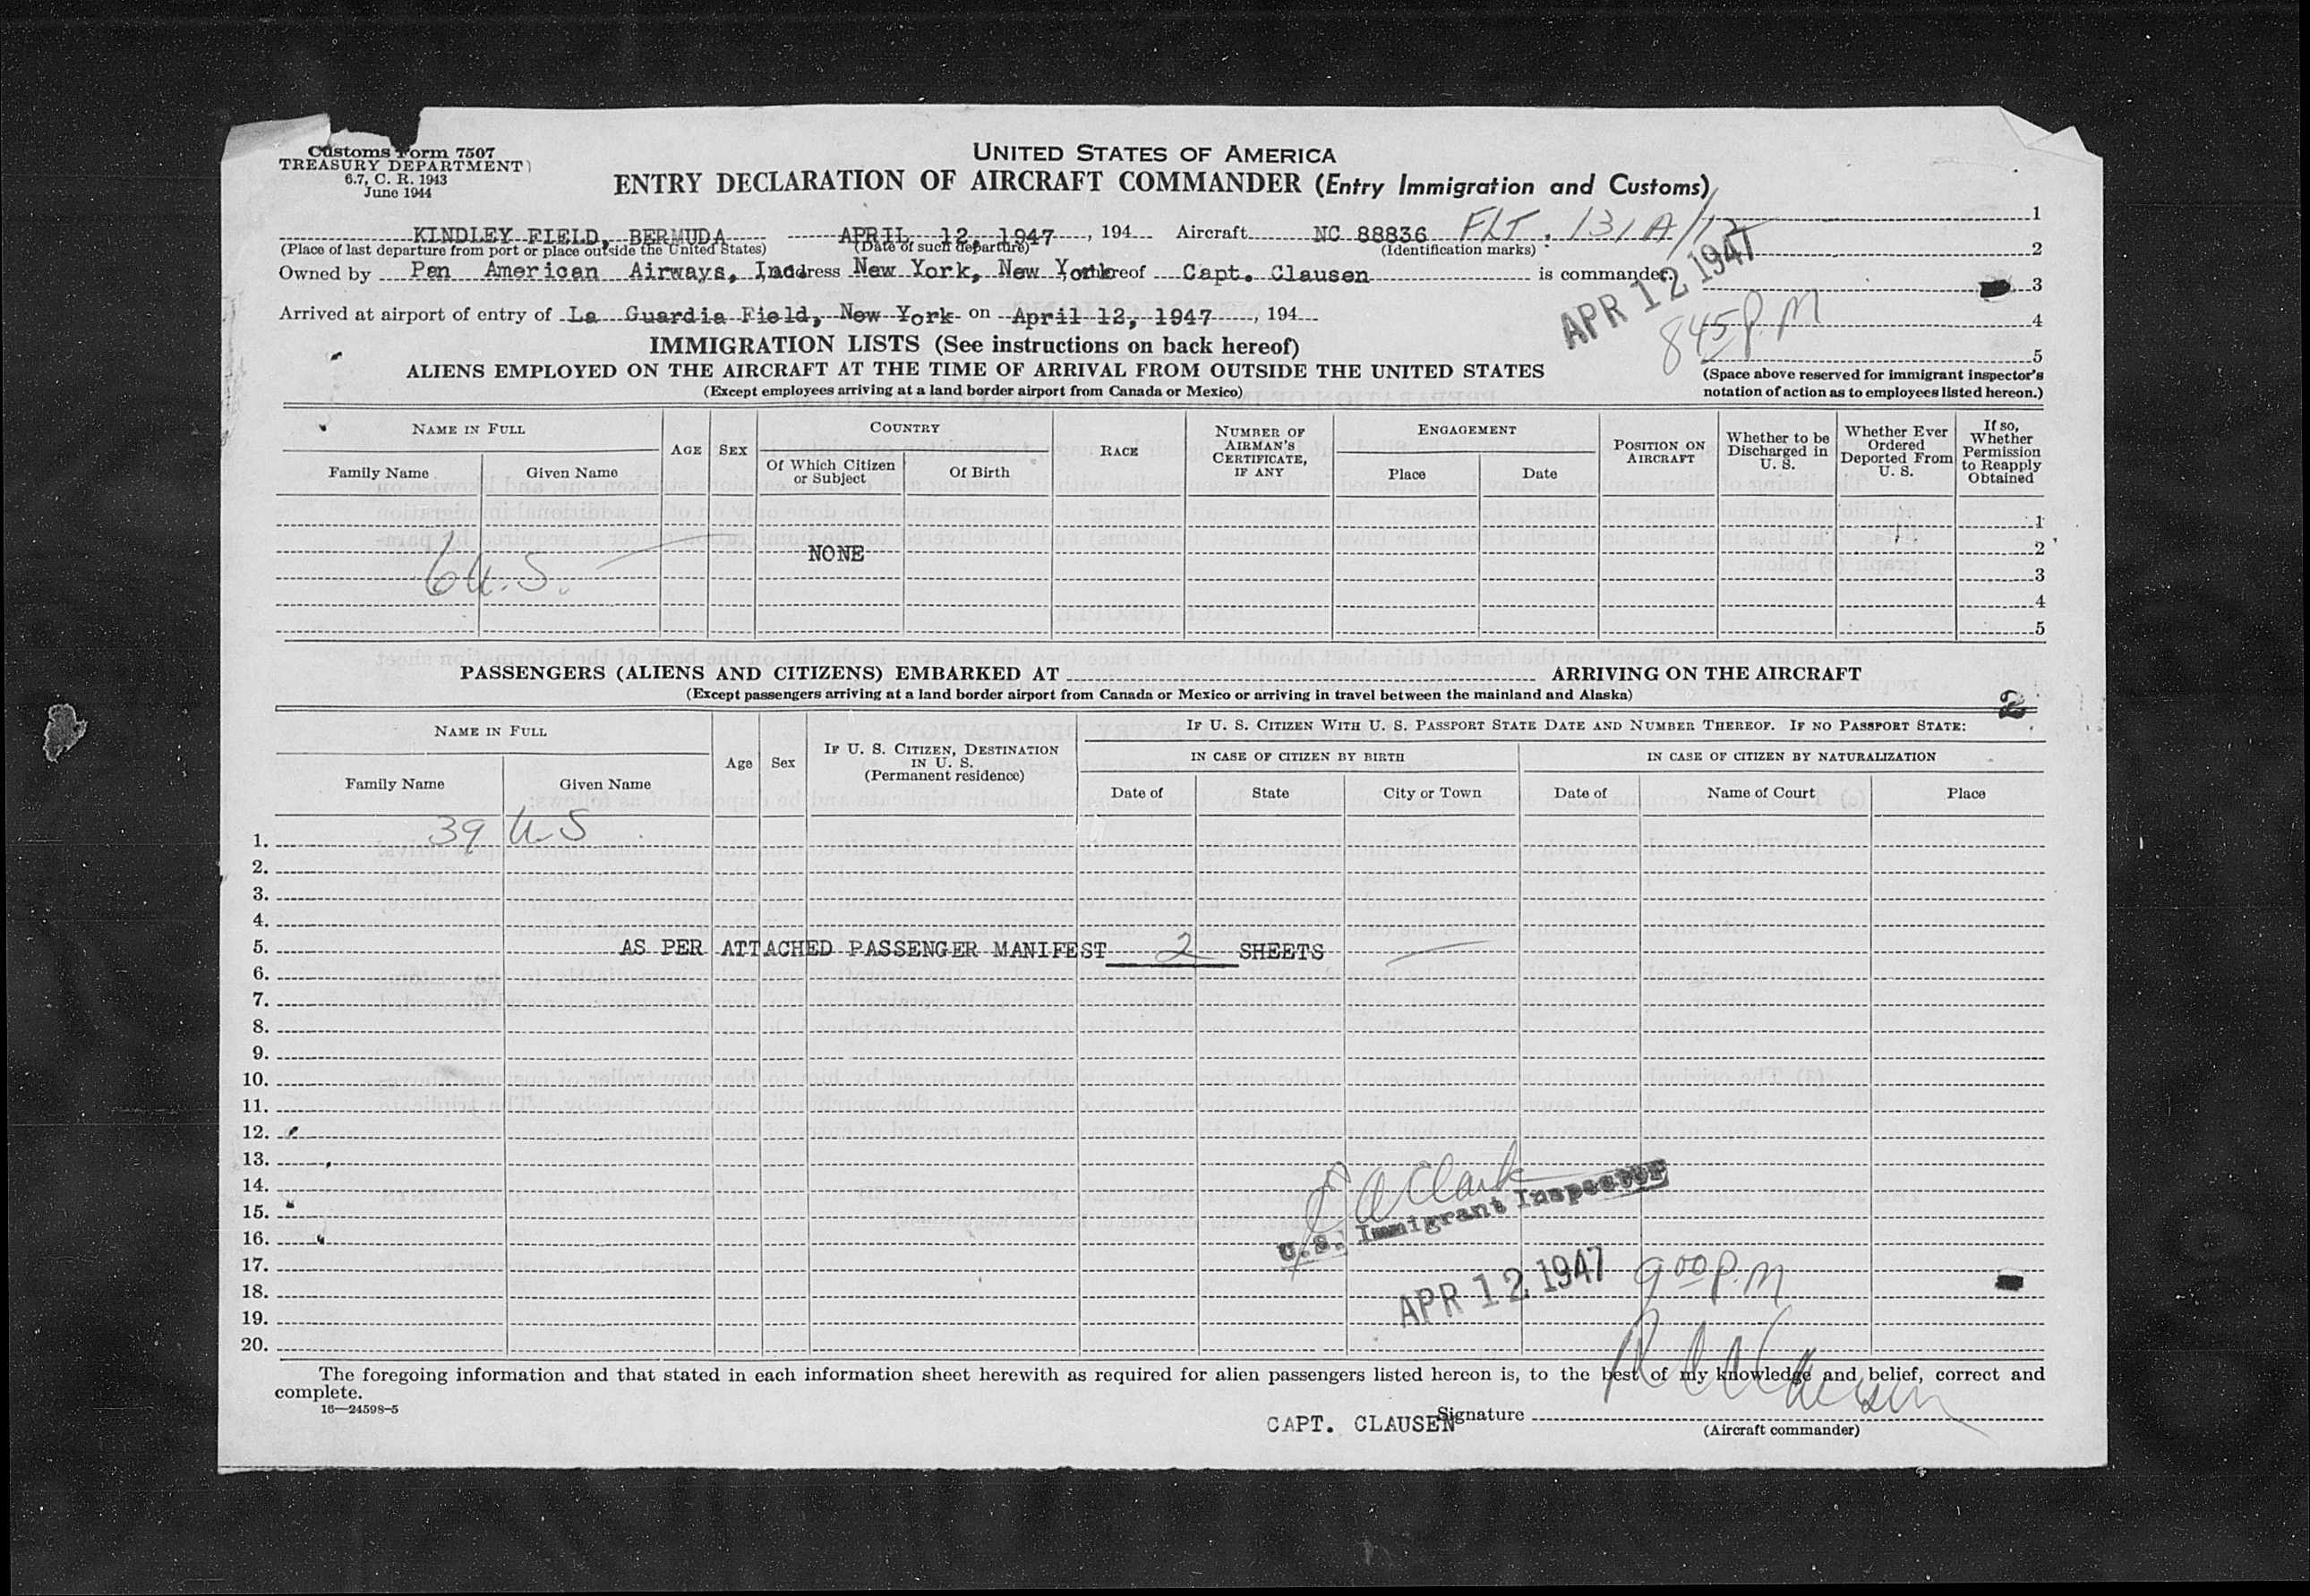 Customs Form 7507
TREASURY DEPARTMENT
6.7, C. R. 1943
June 1944
UNITED STATES OF AMERICA
ENTRY DECLARATION OF AIRCRAFT COMMANDER (Entry Immigration and Customs)
KINDLEY FIELD, BERMUDA APRIL 12, 1947, 194 Aircraft NC 88836 FLT. 131A/12 1
(Place of last departure from port or place outside the United States) (Date of such departure) (Identification marks) 2
Owned by Pan American Airways, Inc address New York, New York thereof Capt. Clausen is commander. 3
APR 12 1947
Arrived at airport of entry of La Guardia Field, New York on April 12, 1947, 194 4
845 P.M
5
IMMIGRATION LISTS (See instructions on back hereof)
ALIENS EMPLOYED ON THE AIRCRAFT AT THE TIME OF ARRIVAL FROM OUTSIDE THE UNITED STATES
(Except employees arriving at a land border airport from Canada or Mexico)
(Space above reserved for immigrant inspector's
notation of action as to employees listed hereon.)
NAME IN FULL
Family Name
Given Name
AGE
SEX
COUNTRY
Of Which Citizen
or Subject
Of Birth
RACE
NUMBER OF
AIRMAN'S
CERTIFICATE,
IF ANY
ENGAGEMENT
Place
Date
POSITION ON
AIRCRAFT
Whether to be
Discharged in
U. S.
Whether Ever
Ordered
Deported From
U. S.
If so,
Whether
Permission
to Reapply
Obtained
1
NONE 2
6 U.S. 3
4
5
PASSENGERS (ALIENS AND CITIZENS) EMBARKED AT ARRIVING ON THE AIRCRAFT
(Except passengers arriving at a land border airport from Canada or Mexico or arriving in travel between the mainland and Alaska)
2
NAME IN FULL
Family Name
Given Name
Age
Sex
IF U. S. CITIZEN, DESTINATION
IN U. S.
(Permanent residence)
IF U. S. CITIZEN WITH U. S. PASSPORT STATE DATE AND NUMBER THEREOF. IF NO PASSPORT STATE:
IN CASE OF CITIZEN BY BIRTH
IN CASE OF CITIZEN BY NATURALIZATION
Date of
State
City or Town
Date of
Name of Court
Place
1. 39 U.S
2.
3.
4.
5. AS PER ATTACHED PASSENGER MANIFEST 2 SHEETS
6.
7.
8.
9.
10.
11.
12.
13.
14.
15.
16.
17.
18.
19.
20.
Clark
U.S. Immigrant Inspector
APR 12 1947 900 P.M
The foregoing information and that stated in each information sheet herewith as required for alien passengers listed hereon is, to the best of my knowledge and belief, correct and
complete.
16—24598-5
CAPT. CLAUSEN Signature Clausen
(Aircraft commander)